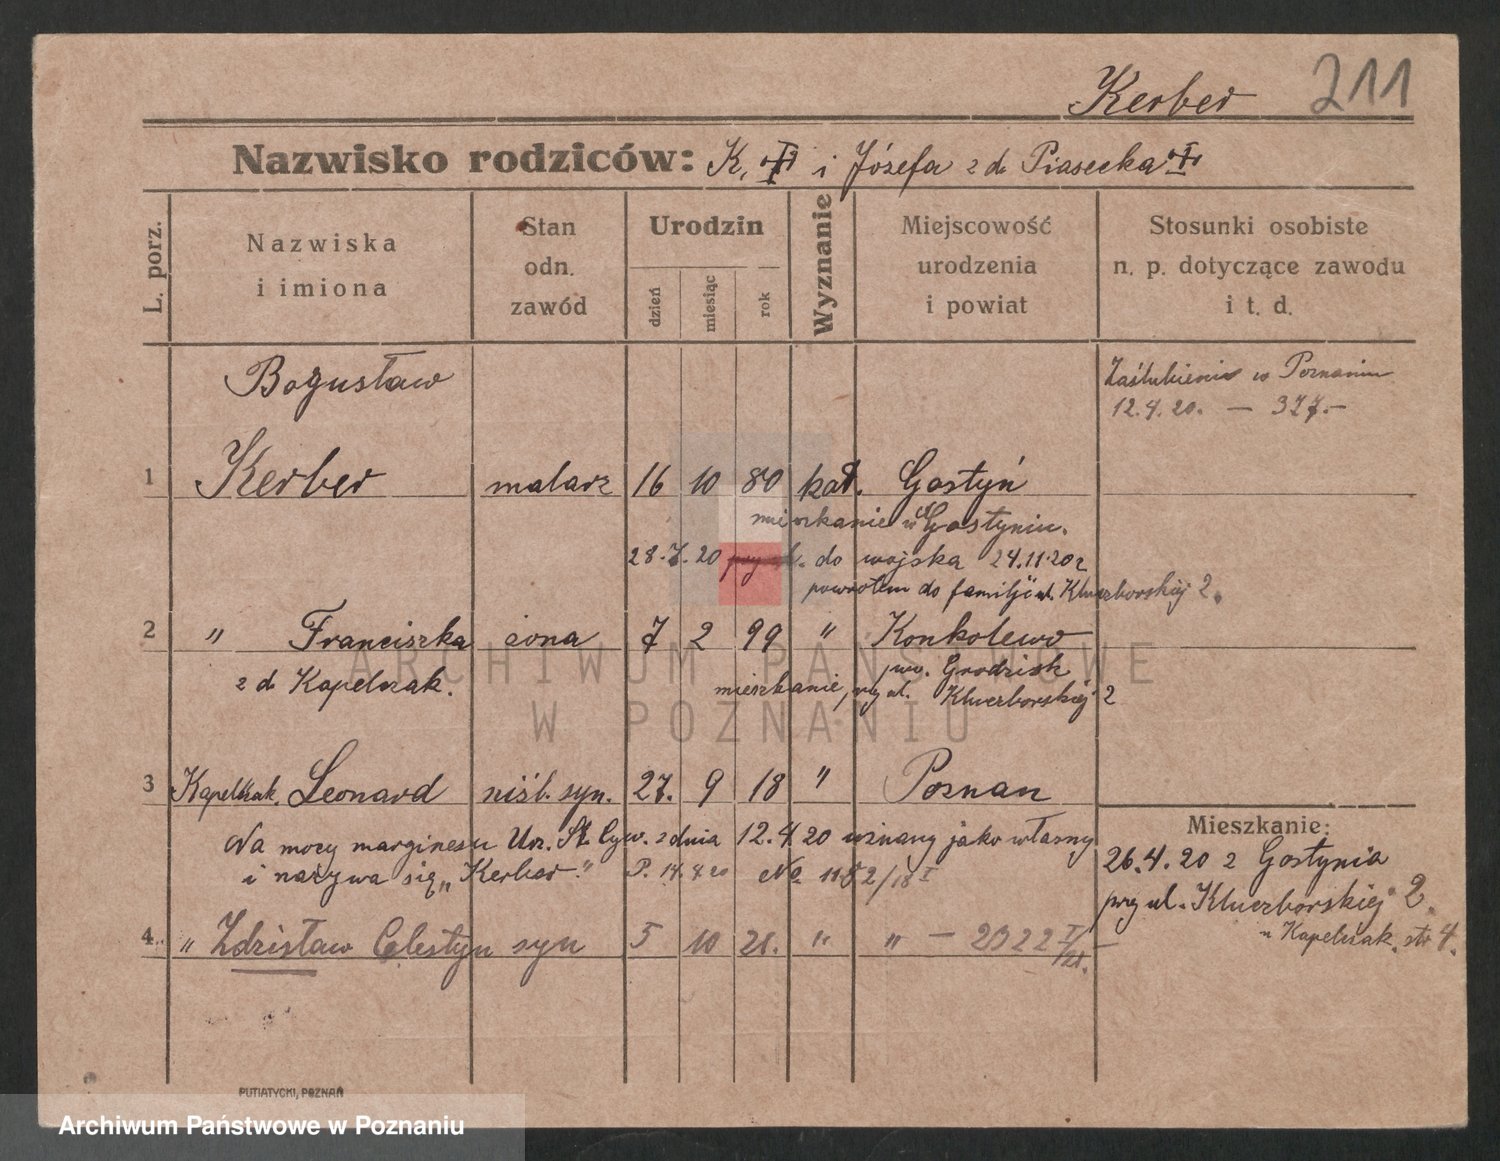 Kerber 211
Nazwisko rodziców: K. i Józefa z d. Piasecka
L. porz.
Nazwiska i imiona
Stan odn. zawód
Urodzin
dzień miesiąc rok
Wyznanie
Miejscowość urodzenia i powiat
Stosunki osobiste n. p. dotyczące zawodu i t. d.
Bogusław
Zaślubieni w Poznaniu
12.4.20. — 327.—
1 Kerber malarz 16 10 80 kat. Gostyń
mieszkanie w Gostyniu.
28.7.20 do wojska 24.11.20 z
powrotem do familji ul. Kluczborskiej 2.
2 " Franciszka żona 7 2 99 " Konkolewo
z d. Kapelczak. pow. Grodzisk
mieszkanie, przy ul. Kluczborskiej 2
3 Kapelczak Leonard nieśl. syn. 27. 9 18 " Poznań
Na mocy marginesu Urz. St. Cyw. z dnia 12.4 20 uznany jako własny
i nazywa się „Kerber." P. 14.8 20 No 1152/18 I
Mieszkanie:
26.4.20 z Gostynia
przy ul. Kluczborskiej 2.
u Kapelczak. str 4.
4. " Zdzisław Celestyn syn 5 10 21. " " — 2322 I/21.
PUTIATYCKI, POZNAŃ
ARCHIWUM PAŃSTWOWE
W POZNANIU
Archiwum Państwowe w Poznaniu